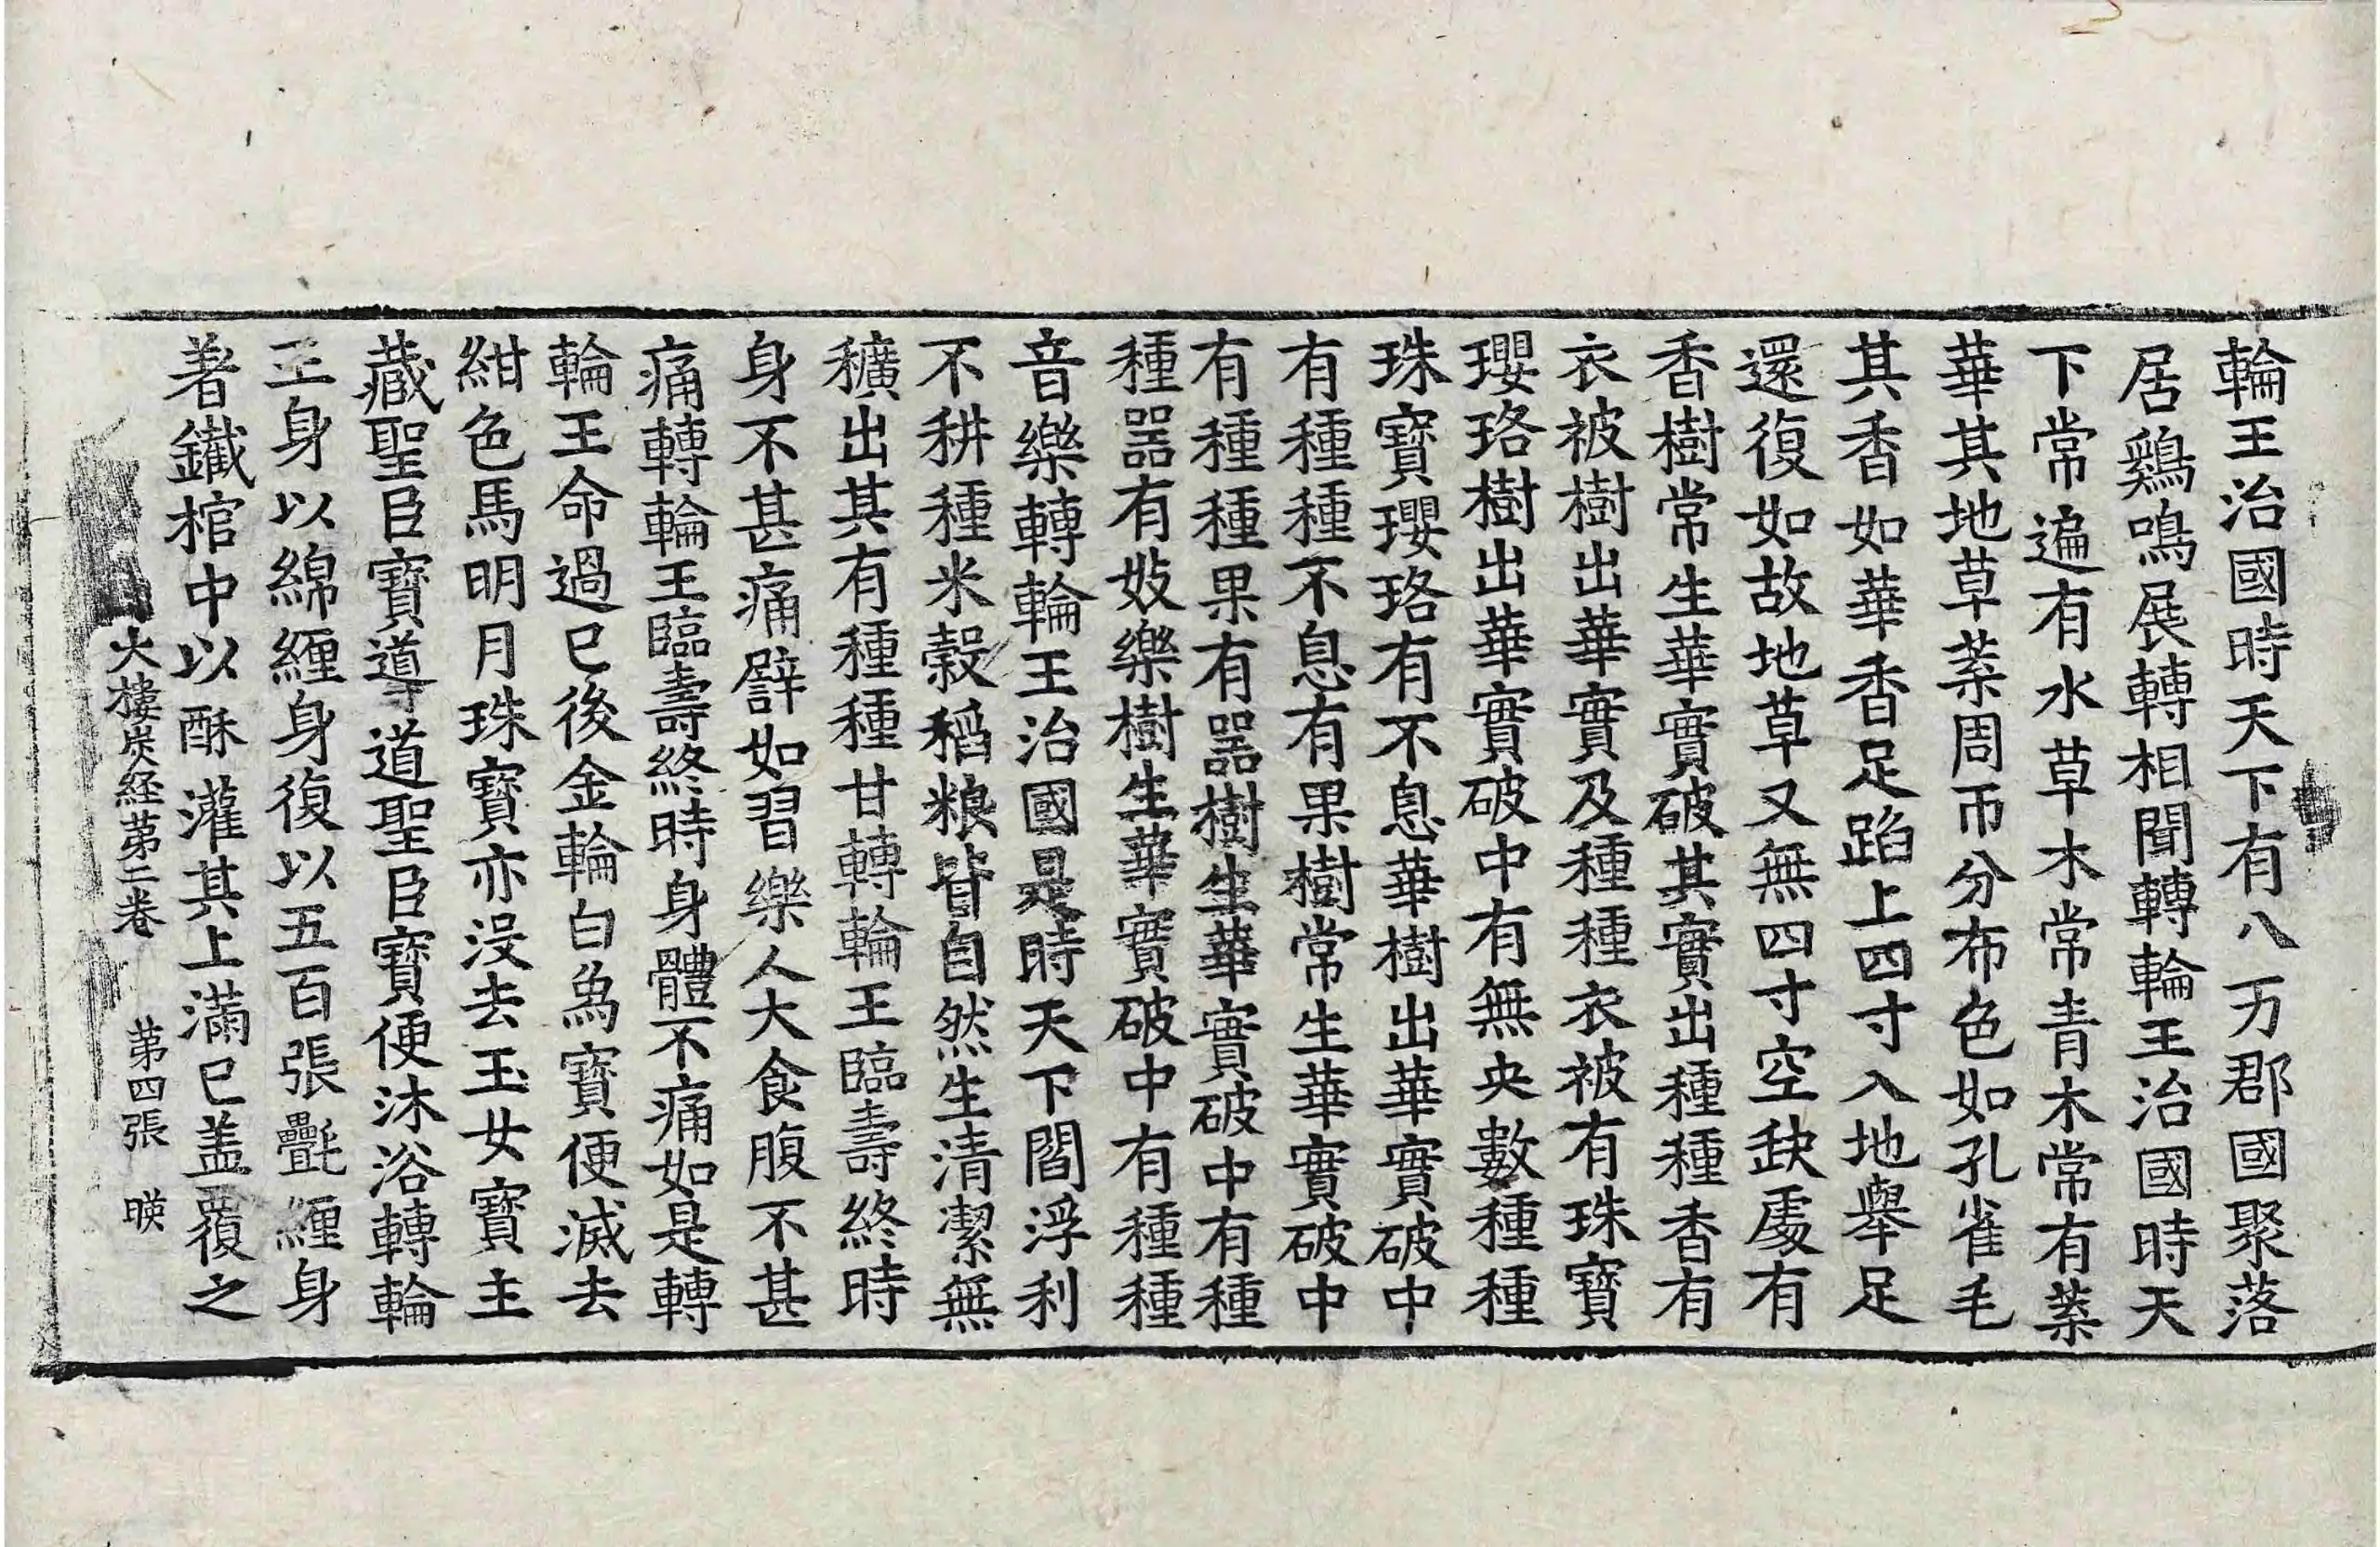 輪王治國時天下有八万郡國聚落
居鷄鳴展轉相聞轉輪王治國時天
下常遍有水草木常青木常有葉
華其地草葉周帀分布色如孔雀毛
其香如華香足蹈上四寸入地舉足
還復如故地草又無四寸空缺處有
香樹常生華實破其實出種種香有
衣被樹出華實及種種衣被有珠寶
瓔珞樹出華實破中有無央數種種
珠寶瓔珞有不息華樹出華實破中
有種種不息有果樹常生華實破中
有種種果有器樹生華實破中有種
種器有妓樂樹生華實破中有種種
音樂轉輪王治國是時天下閻浮利
不耕種米穀稻粮皆自然生清潔無
穬出其有種種甘轉輪王臨壽終時
身不甚痛譬如習樂人大食腹不甚
痛轉輪王臨壽終時身體不痛如是轉
輪王命過已後金輪白為寶便滅去
紺色馬明月珠寶亦沒去玉女寶主
藏聖臣寶導道聖臣寶便沐浴轉輪
王身以綿纏身復以五百張㲲纏身
著鐵棺中以酥灌其上滿已盖覆之
大樓炭経苐二卷　苐四張　暎